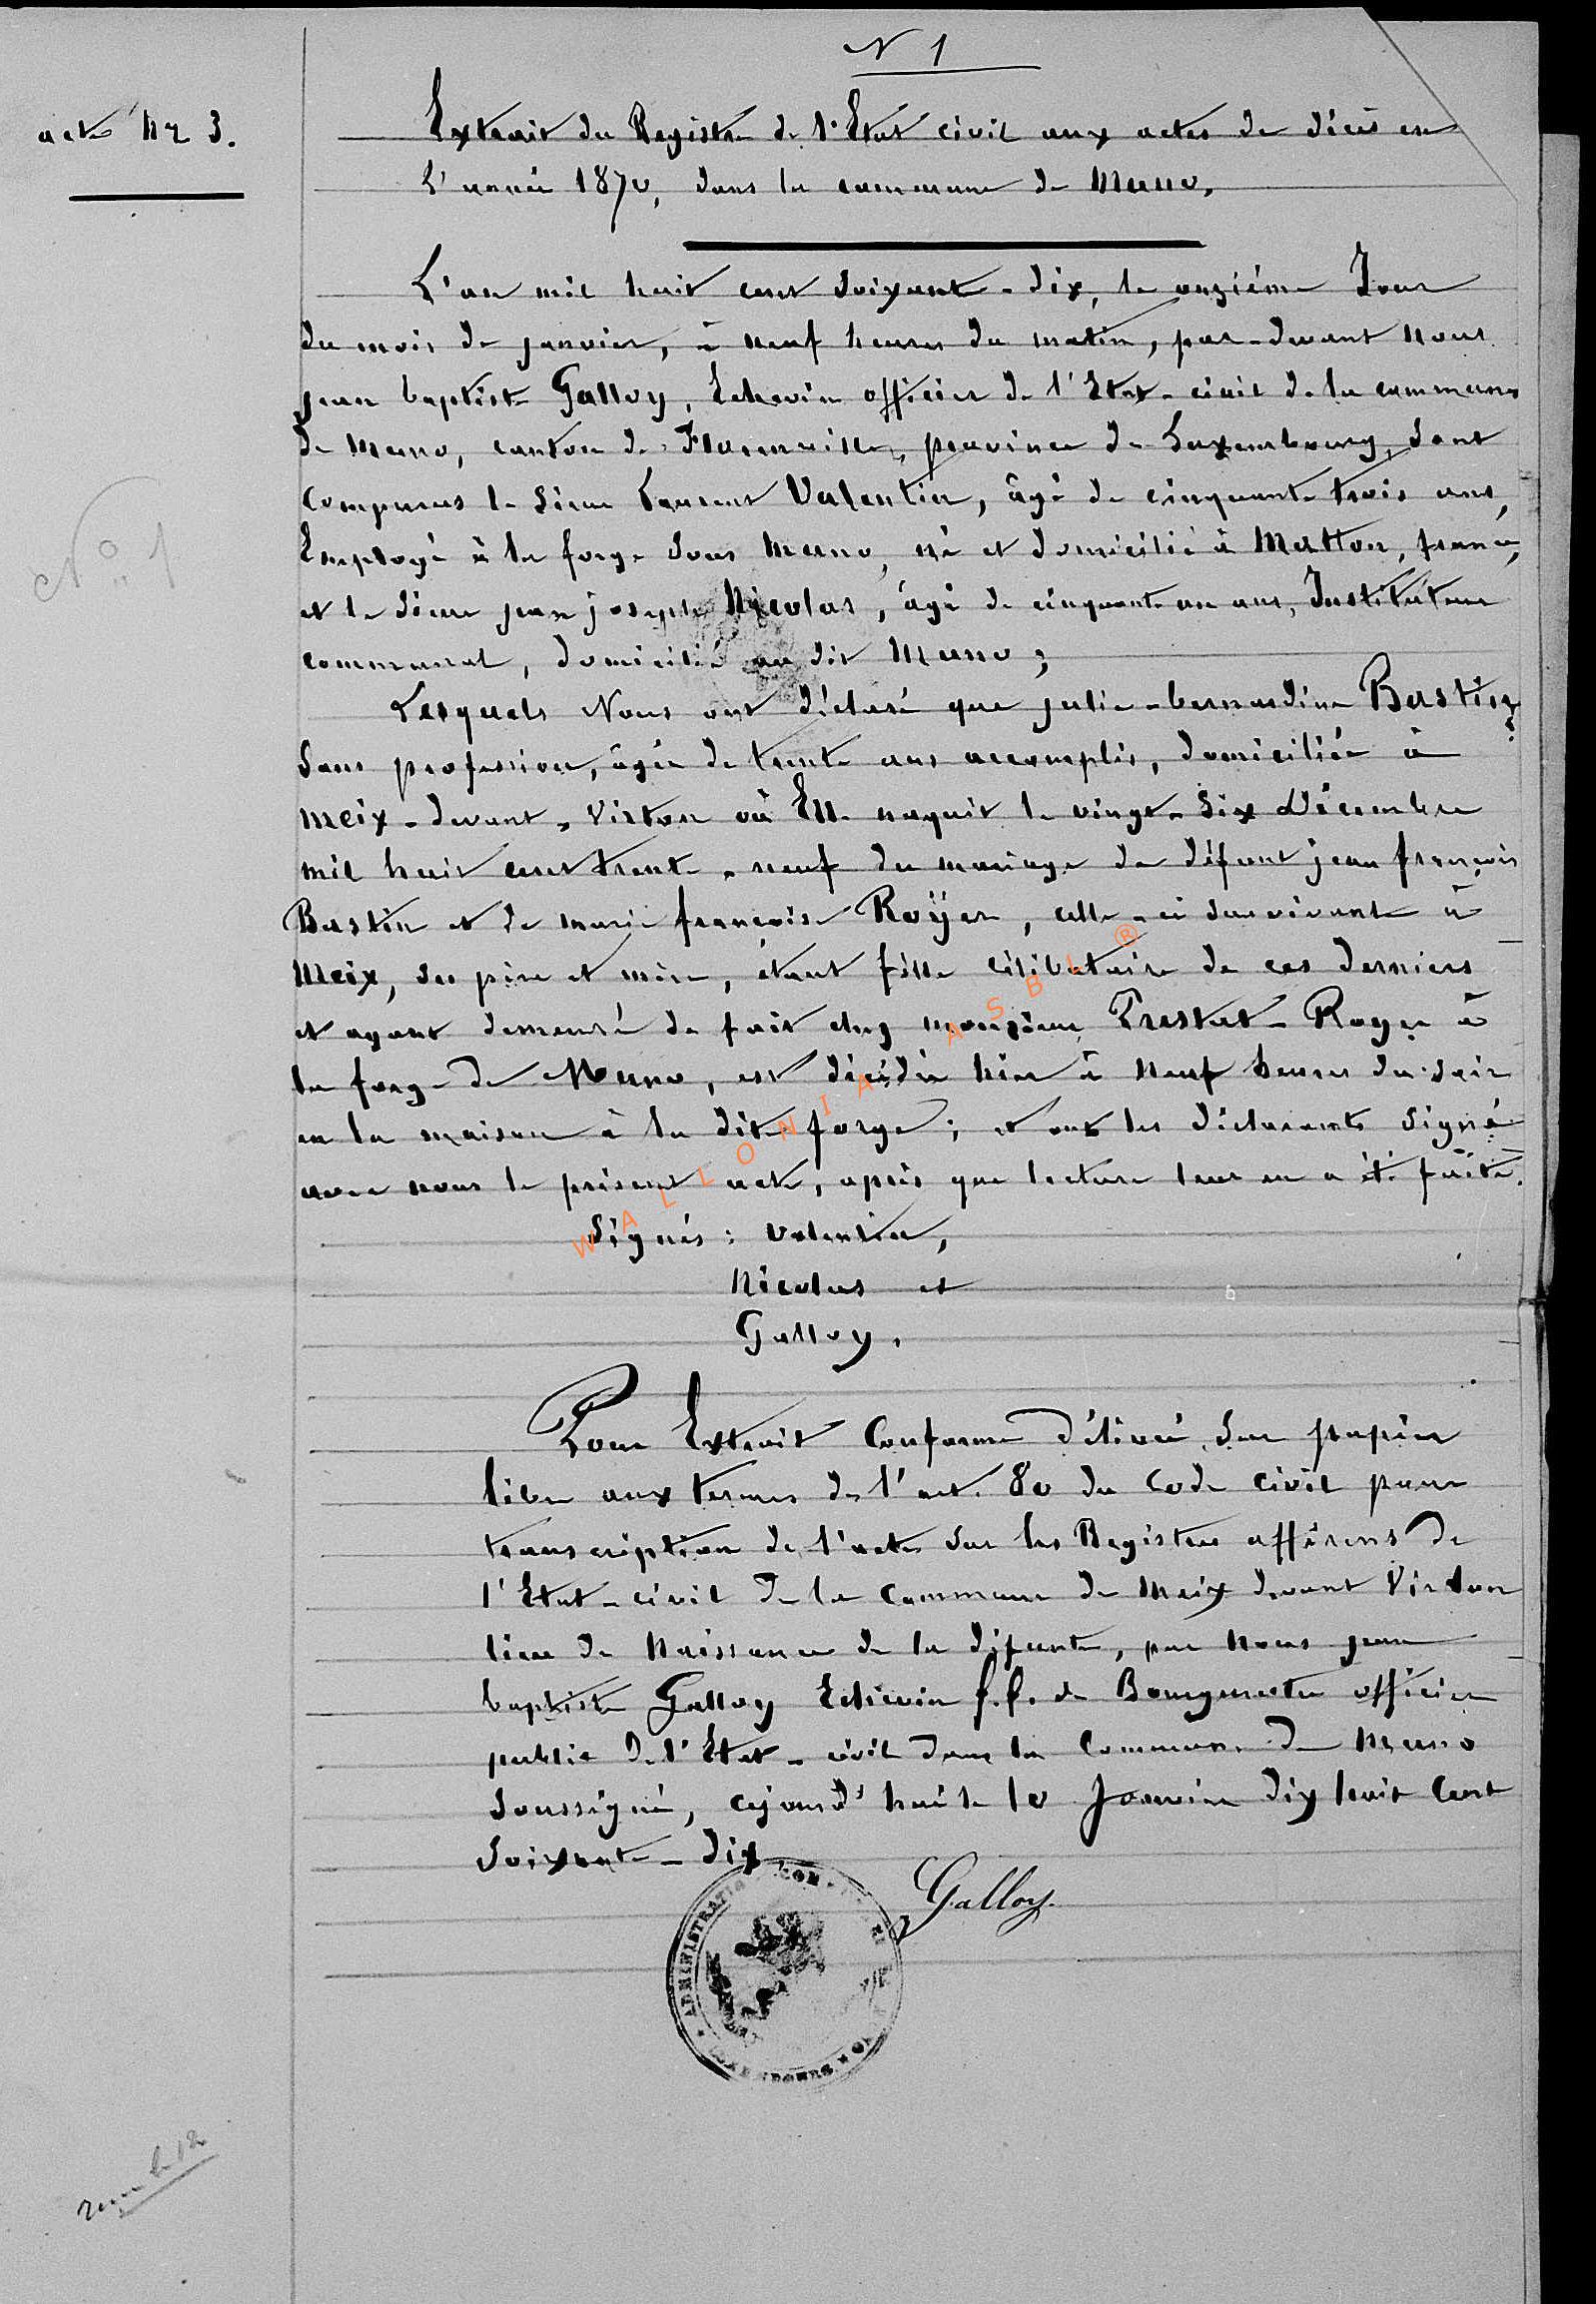 N 1
acte Nr 3.
Extrait du Registre de l'Etat civil aux actes de décès en
l'année 1870, dans la commune de Muno.
L'an mil huit cent soixante-dix, le onzième Jour
du mois de janvier, à neuf heures du matin, par-devant nous
jean baptiste Galloy, Echevin officier de l'Etat-civil de la commune
de Muno, canton de Florenville, province de Luxembourg, sont
comparus le sieur Laurent Valentin, âgé de cinquante trois ans,
Employé à la forge sous Muno, né et domicilié à Matton, france,
et le sieur jean joseph Nicolas, âgé de cinquante un ans, Instituteur
communal, domicilié au dit Muno;
Lesquels Nous ont déclaré que julie-bernardine Bastin,
sans profession, âgée de trente ans accomplis, domiciliée à
Meix-devant-Virton où Elle naquit le vingt-six Décembre
mil huit cent trente-neuf du mariage de défunt jean françois
Bastin et de marie françoise Roÿer, celle-ci survivante à
Meix, ses père et mère, étant fille célibataire de ces derniers
et ayant demeuré de fait chez monsieur Prestat-Royer à
la forge de Muno, est décédée hier à neuf heures du soir
en la maison à la dite forge; et ont les déclarants signé
avec nous le présent acte, après que lecture leur en a été faite.
Signés: Valentin,
Nicolas et
Galloy.
Pour Extrait Conforme délivré sur papier
libre aux termes de l'art. 80 du Code civil pour
transcription de l'acte sur les Registres afférens de
l'Etat-civil de la Commune de Meix devant Virton
lieu de Naissance de la défunte, par Nous jean
baptiste Galloy Echevin f.f. de Bourgmestre officier
public de l'Etat-civil dans la Commune de Muno
soussigné, cejourd'hui le 10 Janvier dix huit cent
soixante-dix
Galloy
N° 1
ADMINISTRATION COM
WALLONIA ASBL ®